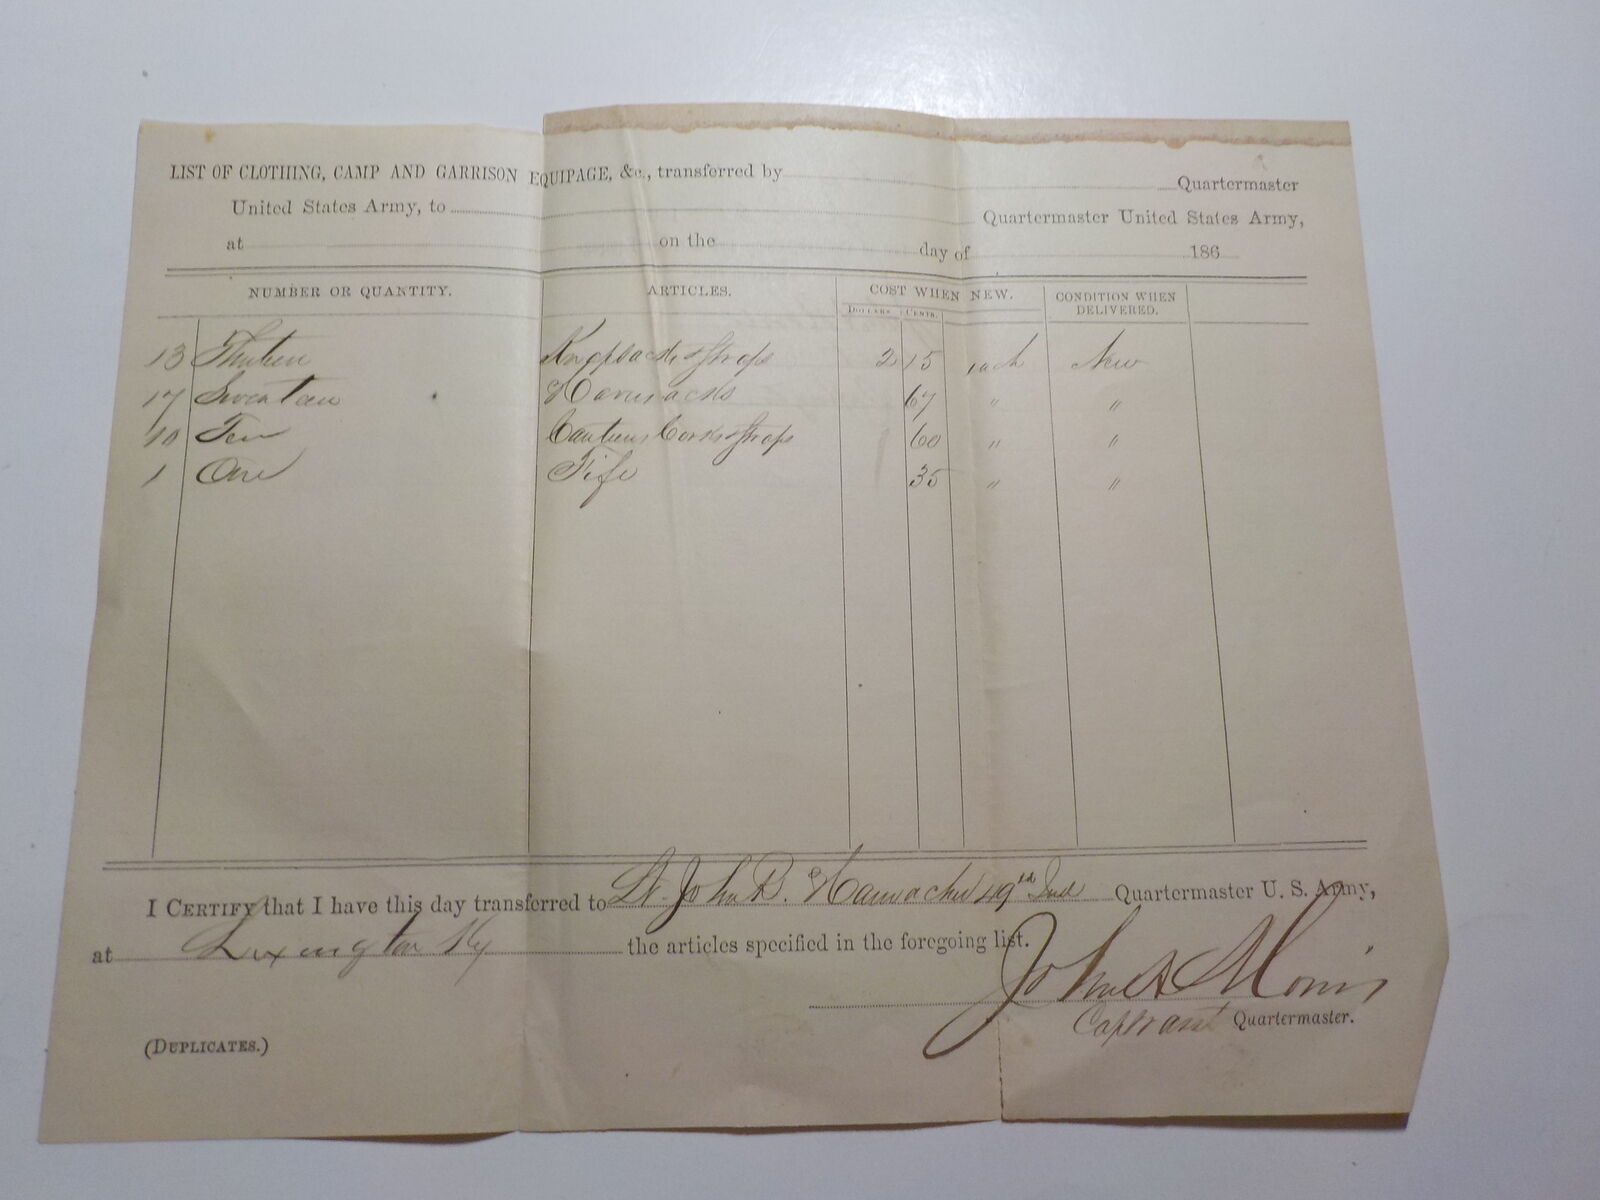 LIST OF CLOTHING, CAMP AND GARRISON EQUIPAGE, &c., transferred by Quartermaster
United States Army, to Quartermaster United States Army,
at on the day of 186
NUMBER OR QUANTITY. ARTICLES. COST WHEN NEW. CONDITION WHEN DELIVERED.
DOLLARS. CENTS.
13 Thirteen Knapsacks & Straps 2 15 each New
17 Seventeen Haversacks 67 " "
10 Ten Canteens Corks & Straps 60 " "
1 One Fife 35 " "
I CERTIFY that I have this day transferred to Lt. John B. 49th Ind Quartermaster U. S. Army,
at Lexington Ky the articles specified in the foregoing list.
John A Morris
Capt & asst Quartermaster.
(DUPLICATES.)